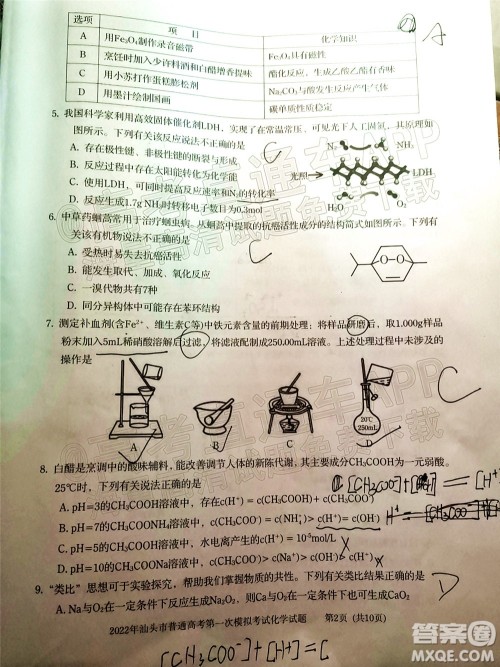 选项
项 目
化学知识
A
用Fe₃O₄制作录音磁带
Fe₃O₄具有磁性
B
烹饪时加入少许料酒和白醋增香提味
酯化反应，生成乙酸乙酯有香味
C
用小苏打作蛋糕膨松剂
Na₂CO₃与酸发生反应产生气体
D
用墨汁绘制国画
碳单质性质稳定
A
5. 我国科学家利用高效固体催化剂LDH，实现了在常温常压，可见光下人工固氮，其原理如
图所示。下列有关该反应说法不正确的是
A. 存在极性键、非极性键的断裂与形成
B. 反应过程中存在
C. 使用LDH，可同时提高反应速率和N₂的转化率
D. 反应生成1.7g NH₃时转移电子数目为0.3mol
C
N₂
NH₃
光照
H₂O
O₂
6. 中草药蛔蒿常用于治疗蛔虫病。从蛔蒿中提取的抗癌活性成分的结构简式如图所示。下列有
关该有机物说法不正确的是
A. 受热时易失去抗癌活性
B. 能发生取代、加成、氧化反应
C. 一溴代物共有7种
D. 同分异构体中可能存在苯环结构
C
O
O
7. 测定补血剂(含Fe²⁺、维生素C等)中铁元素含量的前期处理：将样品研磨后，取1.000g样品
粉末加入5mL稀硝酸溶解后过滤，将滤液配制成250.00mL溶液。上述处理过程中未涉及的
操作是
C
20℃
250mL
A
B
C
D
8. 白醋是烹调中的酸味辅料，能改善调节人体的新陈代谢，其主要成分CH₃COOH为一元弱酸。
25℃时，下列有关说法正确的是
A. pH=3的CH₃COOH溶液中，存在c(H⁺) = c(CH₃COO⁻) + c(CH₃COOH)
B. pH=7的CH₃COONH₄溶液中，c(CH₃COO⁻) = c(NH₄⁺) > c(H⁺) = c(OH⁻)
C. pH=5的CH₃COOH溶液中，水电离产生的c(H⁺) = 10⁻⁵mol/L
D. pH=10的CH₃COONa溶液中，c(CH₃COO⁻) > c(Na⁺) > c(OH⁻) > c(H⁺)
9. “类比”思想可于实验探究，帮助我们掌握物质的共性。下列类比结果正确的是
D
A. Na与O₂在一定条件下反应可生成Na₂O₂，则Ca与O₂在一定条件下也可生成CaO₂
2022年汕头市普通高考第一次模拟考试化学试题 第2页（共10页）
[CH₃COO⁻]+[H⁺]=[
答案圈
MXQE.COM